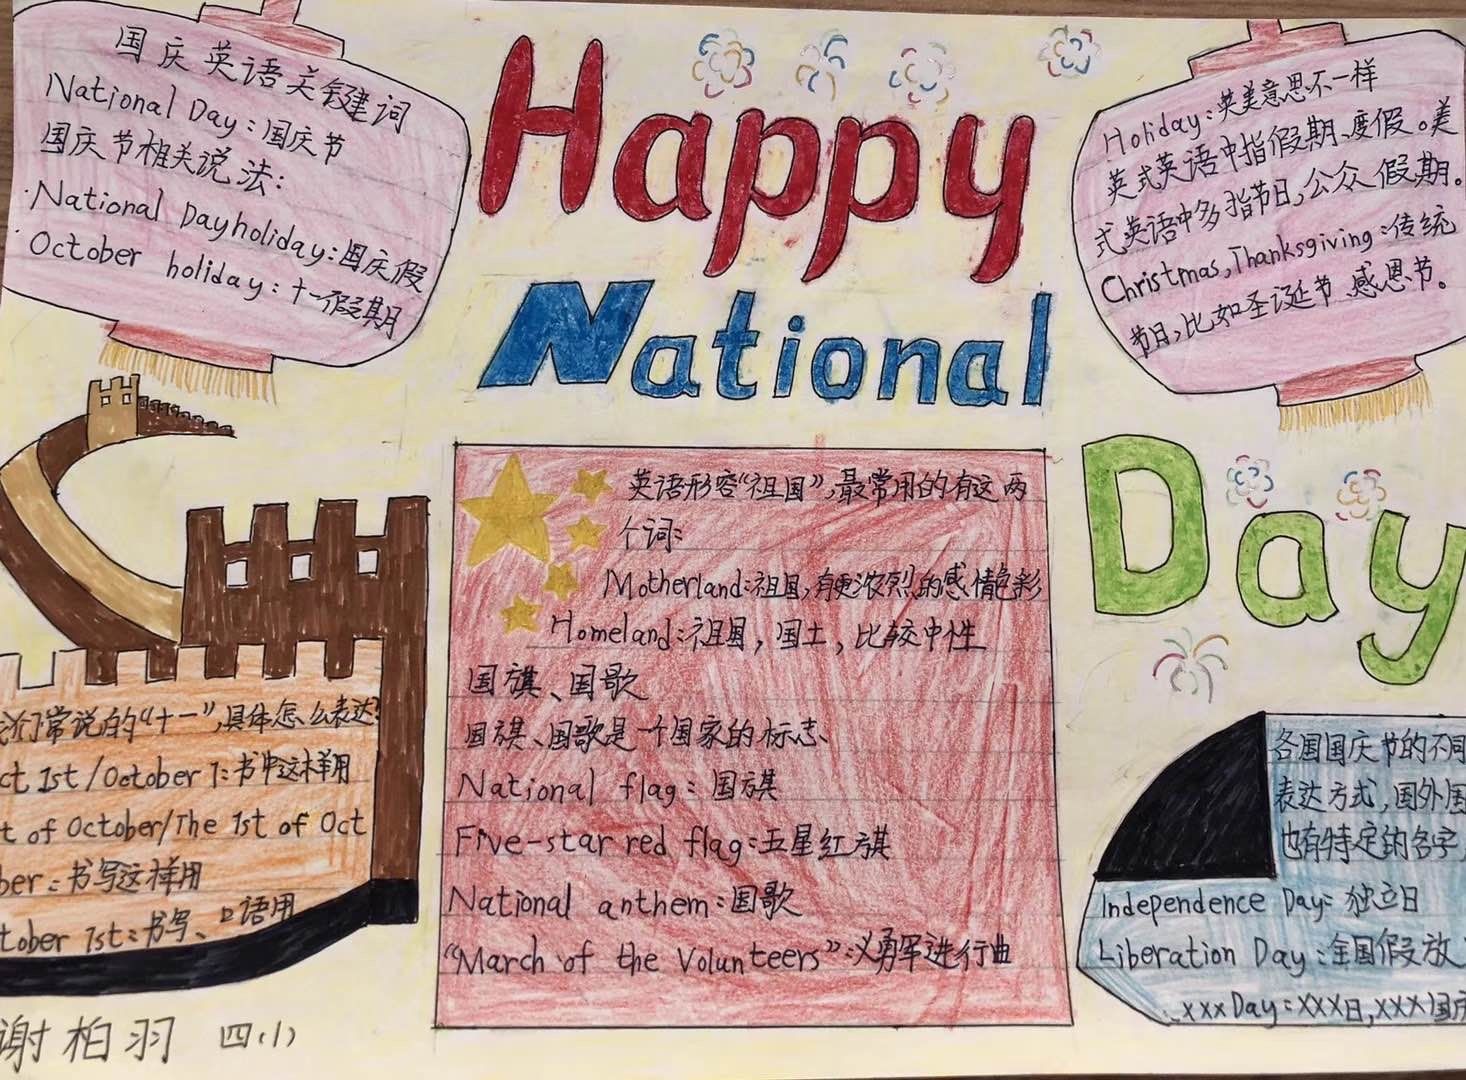 国庆英语关键词
National Day:国庆节
国庆节相关说法:
National Dayholiday:国庆假
October holiday:十一假期
Happy
National
Day
Holiday:英美意思不一样
英式英语中指假期、度假。美
式英语中多指节日,公众假期。
Christmas,Thanksgiving:传统
节日,比如圣诞节、感恩节。
英语形容“祖国”,最常用的有这两
个词:
Motherland:祖国,有更浓烈的感情色彩
Homeland:祖国,国土,比较中性
国旗、国歌
国旗、国歌是一个国家的标志、
National flag:国旗
Five-star red flag:五星红旗
National anthem:国歌
“March of the Volunteers”:义勇军进行曲
们常说的“十一”,具体怎么表达?
ct 1st/October 1:书中这样用
t of October/The 1st of Oct
ber:书写这样用
tober 1st:书写、口语用
各国国庆节的不同
表达方式,国外国
也有特定的名字,
Independence Day:独立日
Liberation Day:全国假放
xxxDay:xxx日,xxx国庆
谢柏羽 四(1)